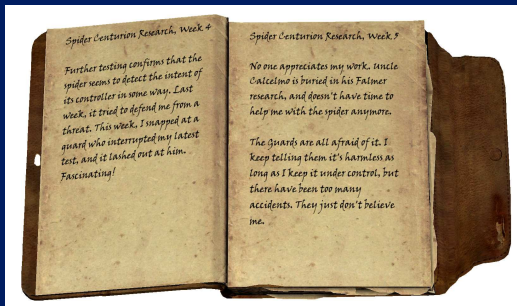 Spider Centurion Research, Week 4
Further testing confirms that the
spider seems to detect the intent of
its controller in some way. Last
week, it tried to defend me from a
threat. This week, I snapped at a
guard who interrupted my latest
test, and it lashed out at him.
Fascinating!
Spider Centurion Research, Week 5
No one appreciates my work. Uncle
Calcelmo is buried in his Falmer
research, and doesn't have time to
help me with the spider anymore.
The Guards are all afraid of it. I
keep telling them it's harmless as
long as I keep it under control, but
there have been too many
accidents. They just don't believe
me.